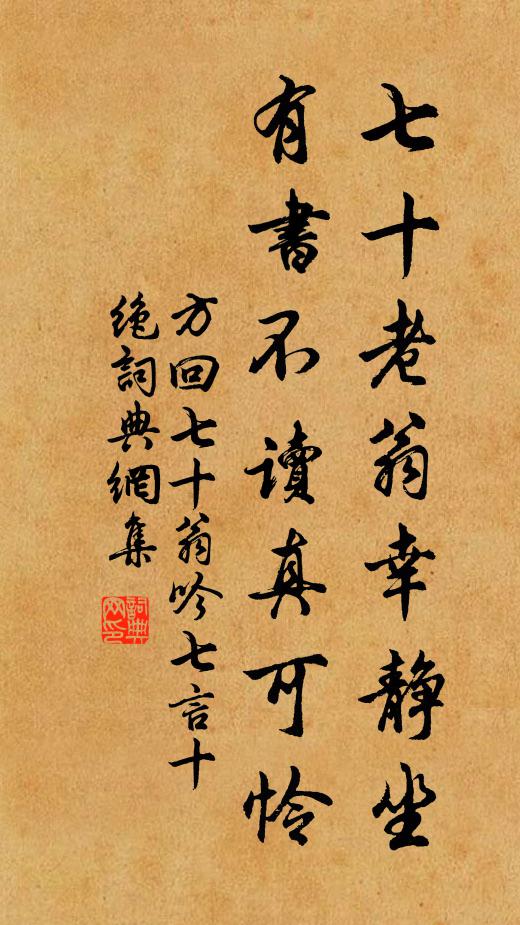 七十老翁幸静坐
有書不讀真可怜
方回七十翁吟七言十
絶詞典網集
詞典网印